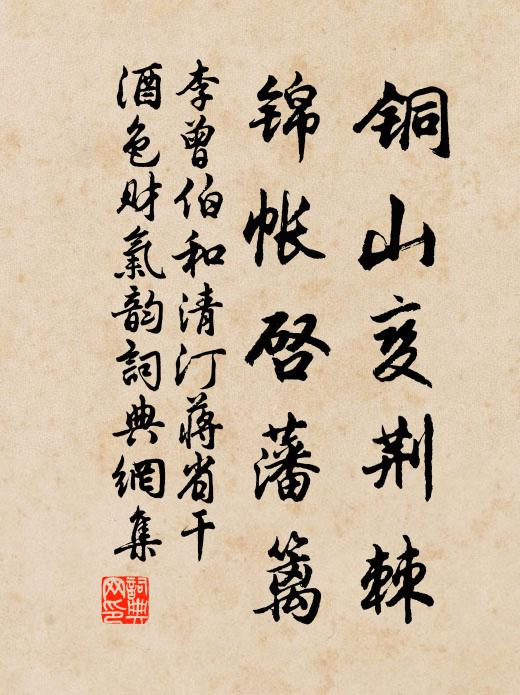 铜山变荆棘
锦帐启藩篱
李曾伯和清汀蒋省干
酒色财气韵词典网集